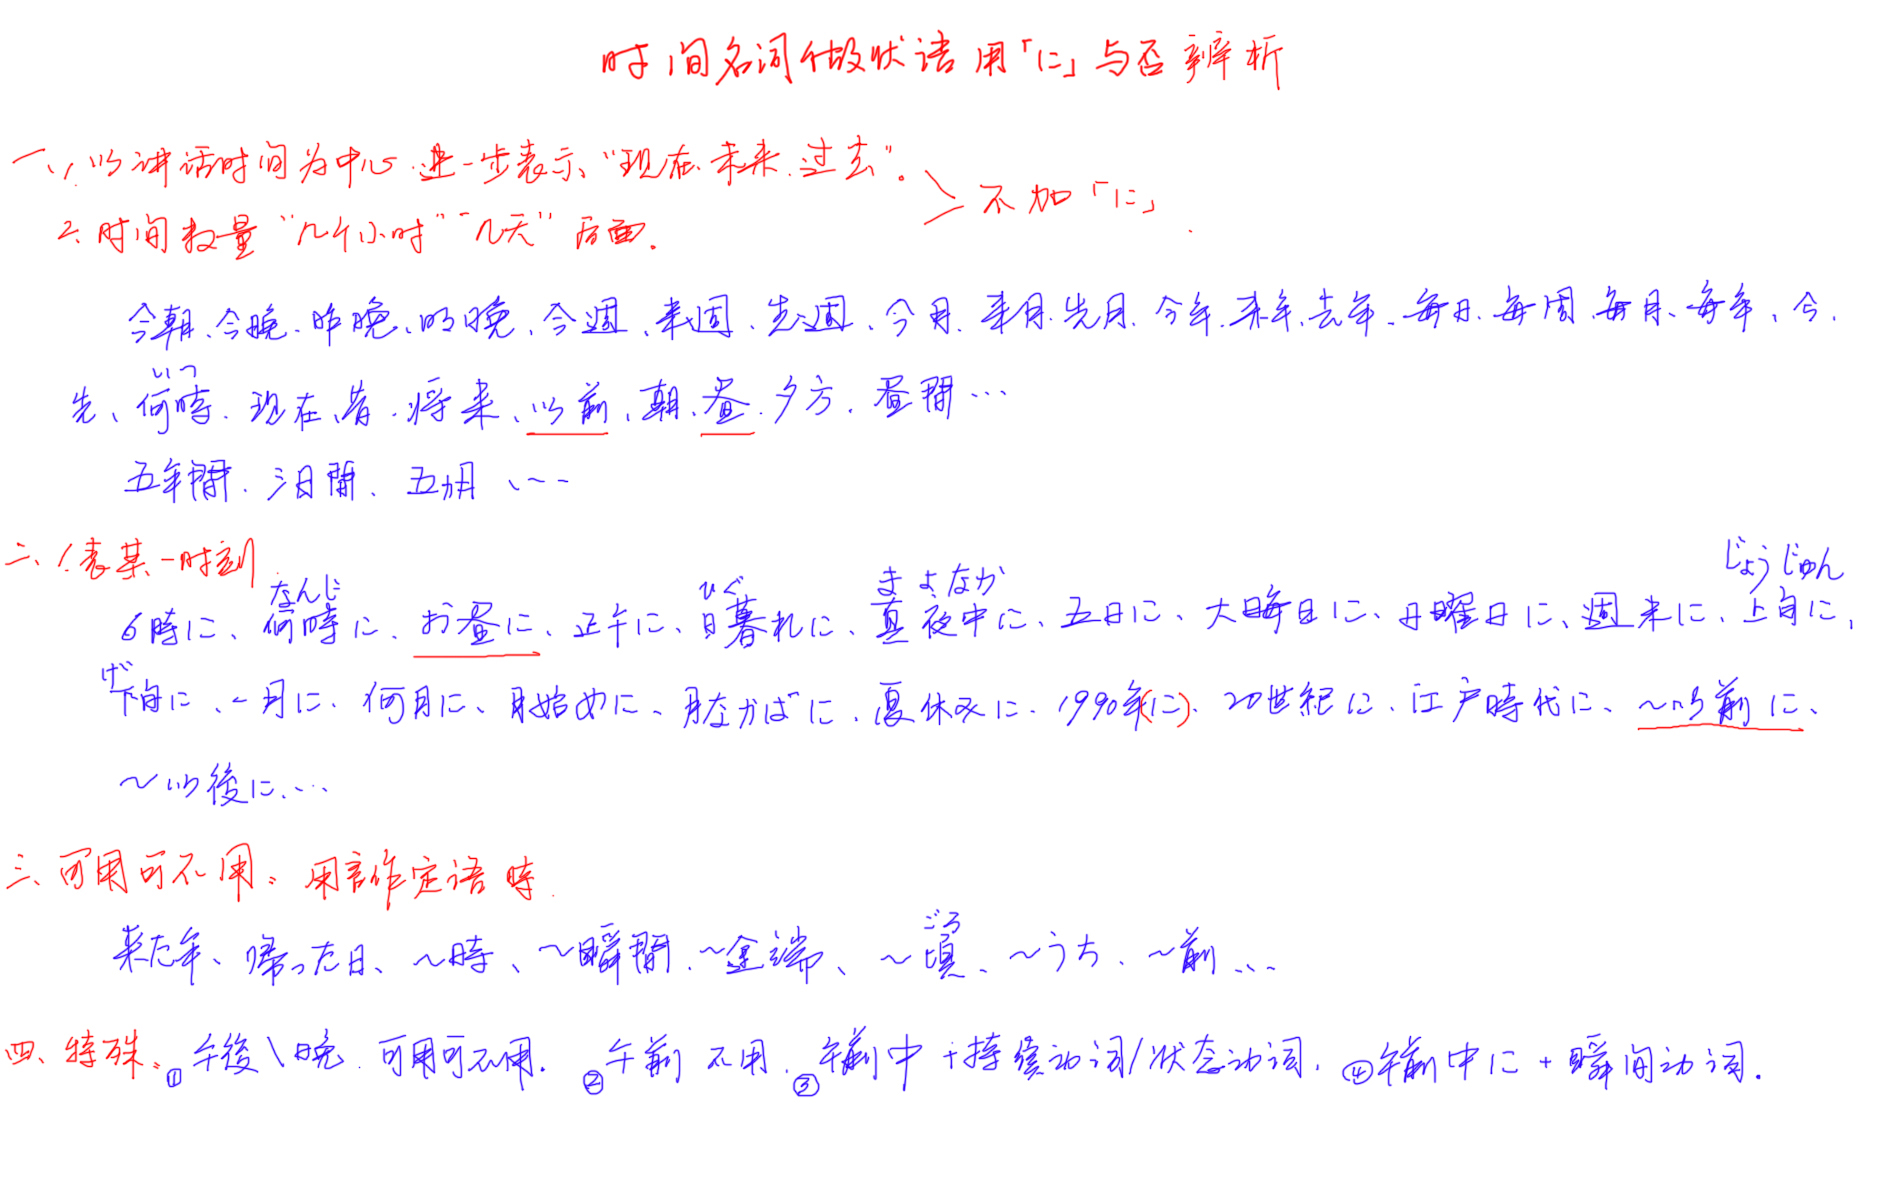 时间名词做状语用「に」与否辨析
一、1.以讲话时间为中心.进一步表示"现在.未来.过去"。
2.时间数量"几个小时""几天"后面.
不加「に」
今朝、今晚、昨晚、明晚、今週、来週、先週、今月、来月、先月、今年、来年、去年、每日、每周、每月、每年、今、
いつ
先、何時、现在、昔、将来、以前、朝、昼、夕方、昼間…
五年間、三日間、五ヵ月、…
二、1.表某一时刻
なんじ ひぐ まよなか じょうじゅん
6時に、何時に、お昼に、正午に、日暮れに、真夜中に、五日に、大晦日に、日曜日に、週末に、上旬に、
げ
下旬に、一月に、何月に、月始めに、月なかばに、夏休みに、1990年(に)、20世紀に、江戸時代に、～以前に、
～以後に、…
三、可用可不用。用言作定语時.
ごろ
来た年、帰った日、～時、～瞬間、～途端、～頃、～うち、～前…
四、特殊。①午後\晚.可用可不用. ②午前 不用. ③午前中+持续动词/状态动词. ④午前中に+瞬间动词.